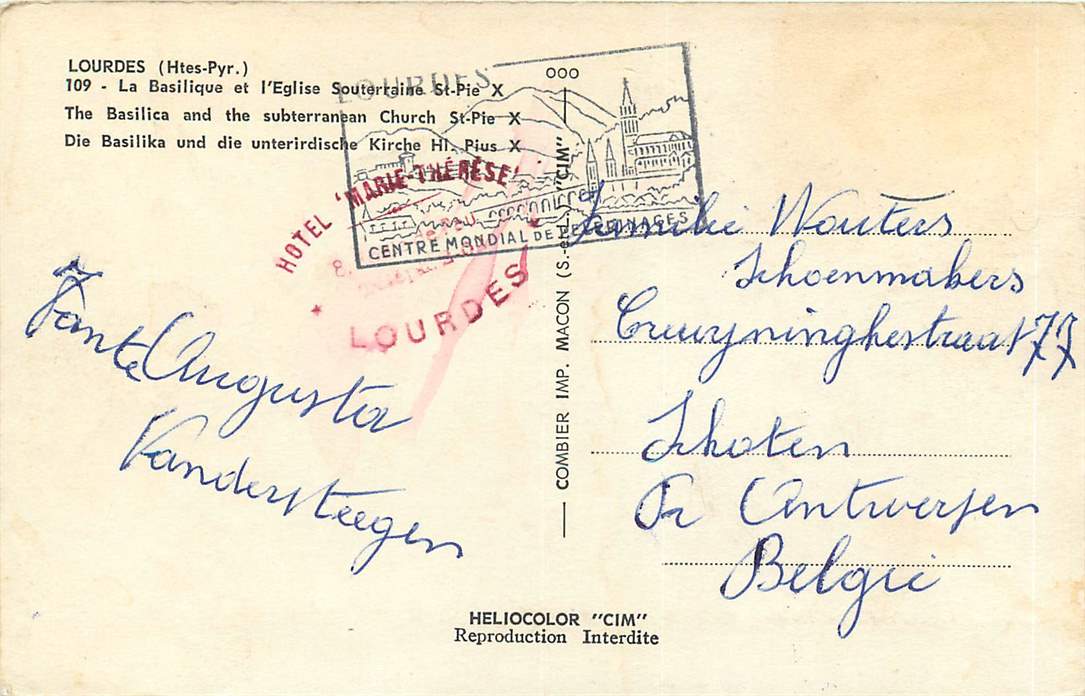 LOURDES (Htes-Pyr.)
109 - La Basilique et l'Eglise Souterraine St-Pie X
The Basilica and the subterranean Church St-Pie X
Die Basilika und die unterirdische Kirche Hl. Pius X
LOURDES
000
CENTRE MONDIAL DE PELERINAGES
HOTEL 'MARIE-THÉRÈSE'
8,
LOURDES
COMBIER IMP. MACON (S.-et-L. "CIM"
Tante Augusta
Vandersteegen
Familie Wouters
Schoenmakers
Cruyninghestraat 77
Schoten
Pr Antwerpen
België
HELIOCOLOR "CIM"
Reproduction Interdite